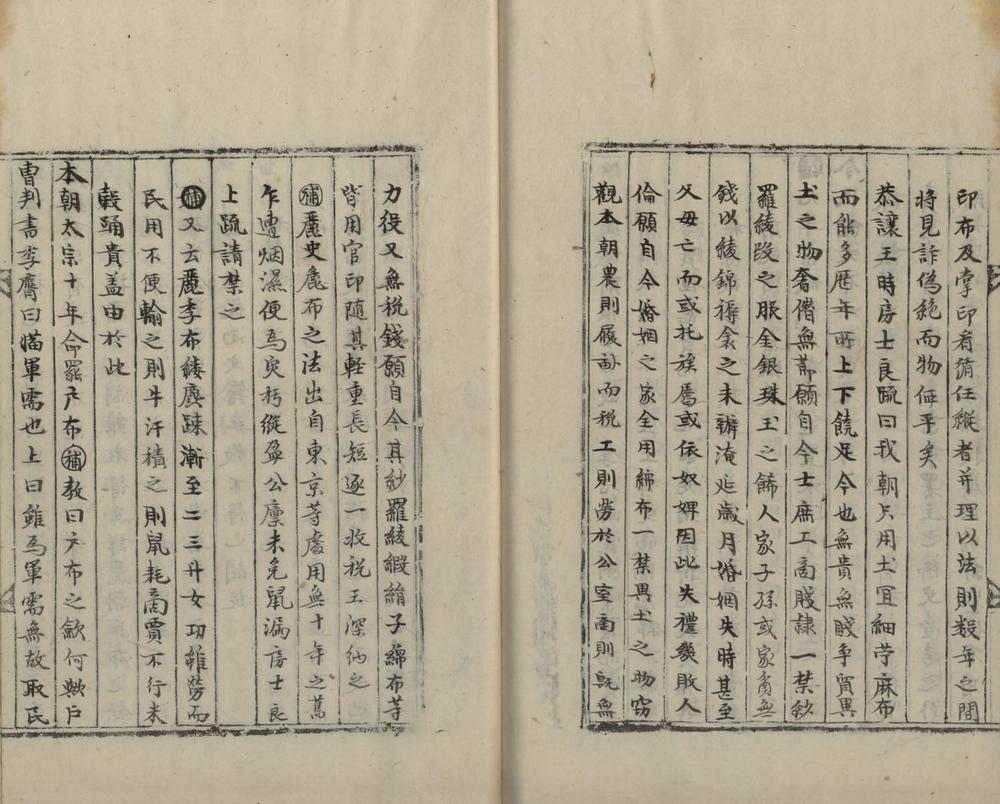 印布及掌印者循任縱者并理以法則數年之間
將見詐僞絶而物価平矣
恭讓王時房士良疏曰我朝只用土宜細苧麻布
而能多歴年所上下饒足今也無貴無賤爭貿異
土之物奢僭無節願自今士庶工商賤隷一禁紗
羅綾段之服金銀珠玉之飾人家子孫或家貧無
錢以綾錦褥衾之未辦淹延歳月婚姻失時甚至
父母亡而或托族焉或依奴婢因此失禮幾敗人
倫願自今婚姻之家全用綿布一禁異土之物窃
觀本朝農則履畝而税工則勞於公室商則既無
力役又無税錢願自今其紗羅綾緞綃子綿布等
皆用官印隨其軽重長短逐一收税王深納之
補麗史麁布之法出自東京等處用無十年之蓄
乍遭烟濕便爲灾朽縱盈公廩未免鼠漏房士良
上疏請禁之
補又云麗季布縷麁踈漸至二三升女功雖勞而
民用不便輸之則牛汗積之則鼠耗商賈不行米
穀踊貴盖由於此
本朝太宗十年命罷戶布補敎曰戶布之歛何歟戶
曹判書李膺曰備軍需也上曰雖爲軍需無故取民